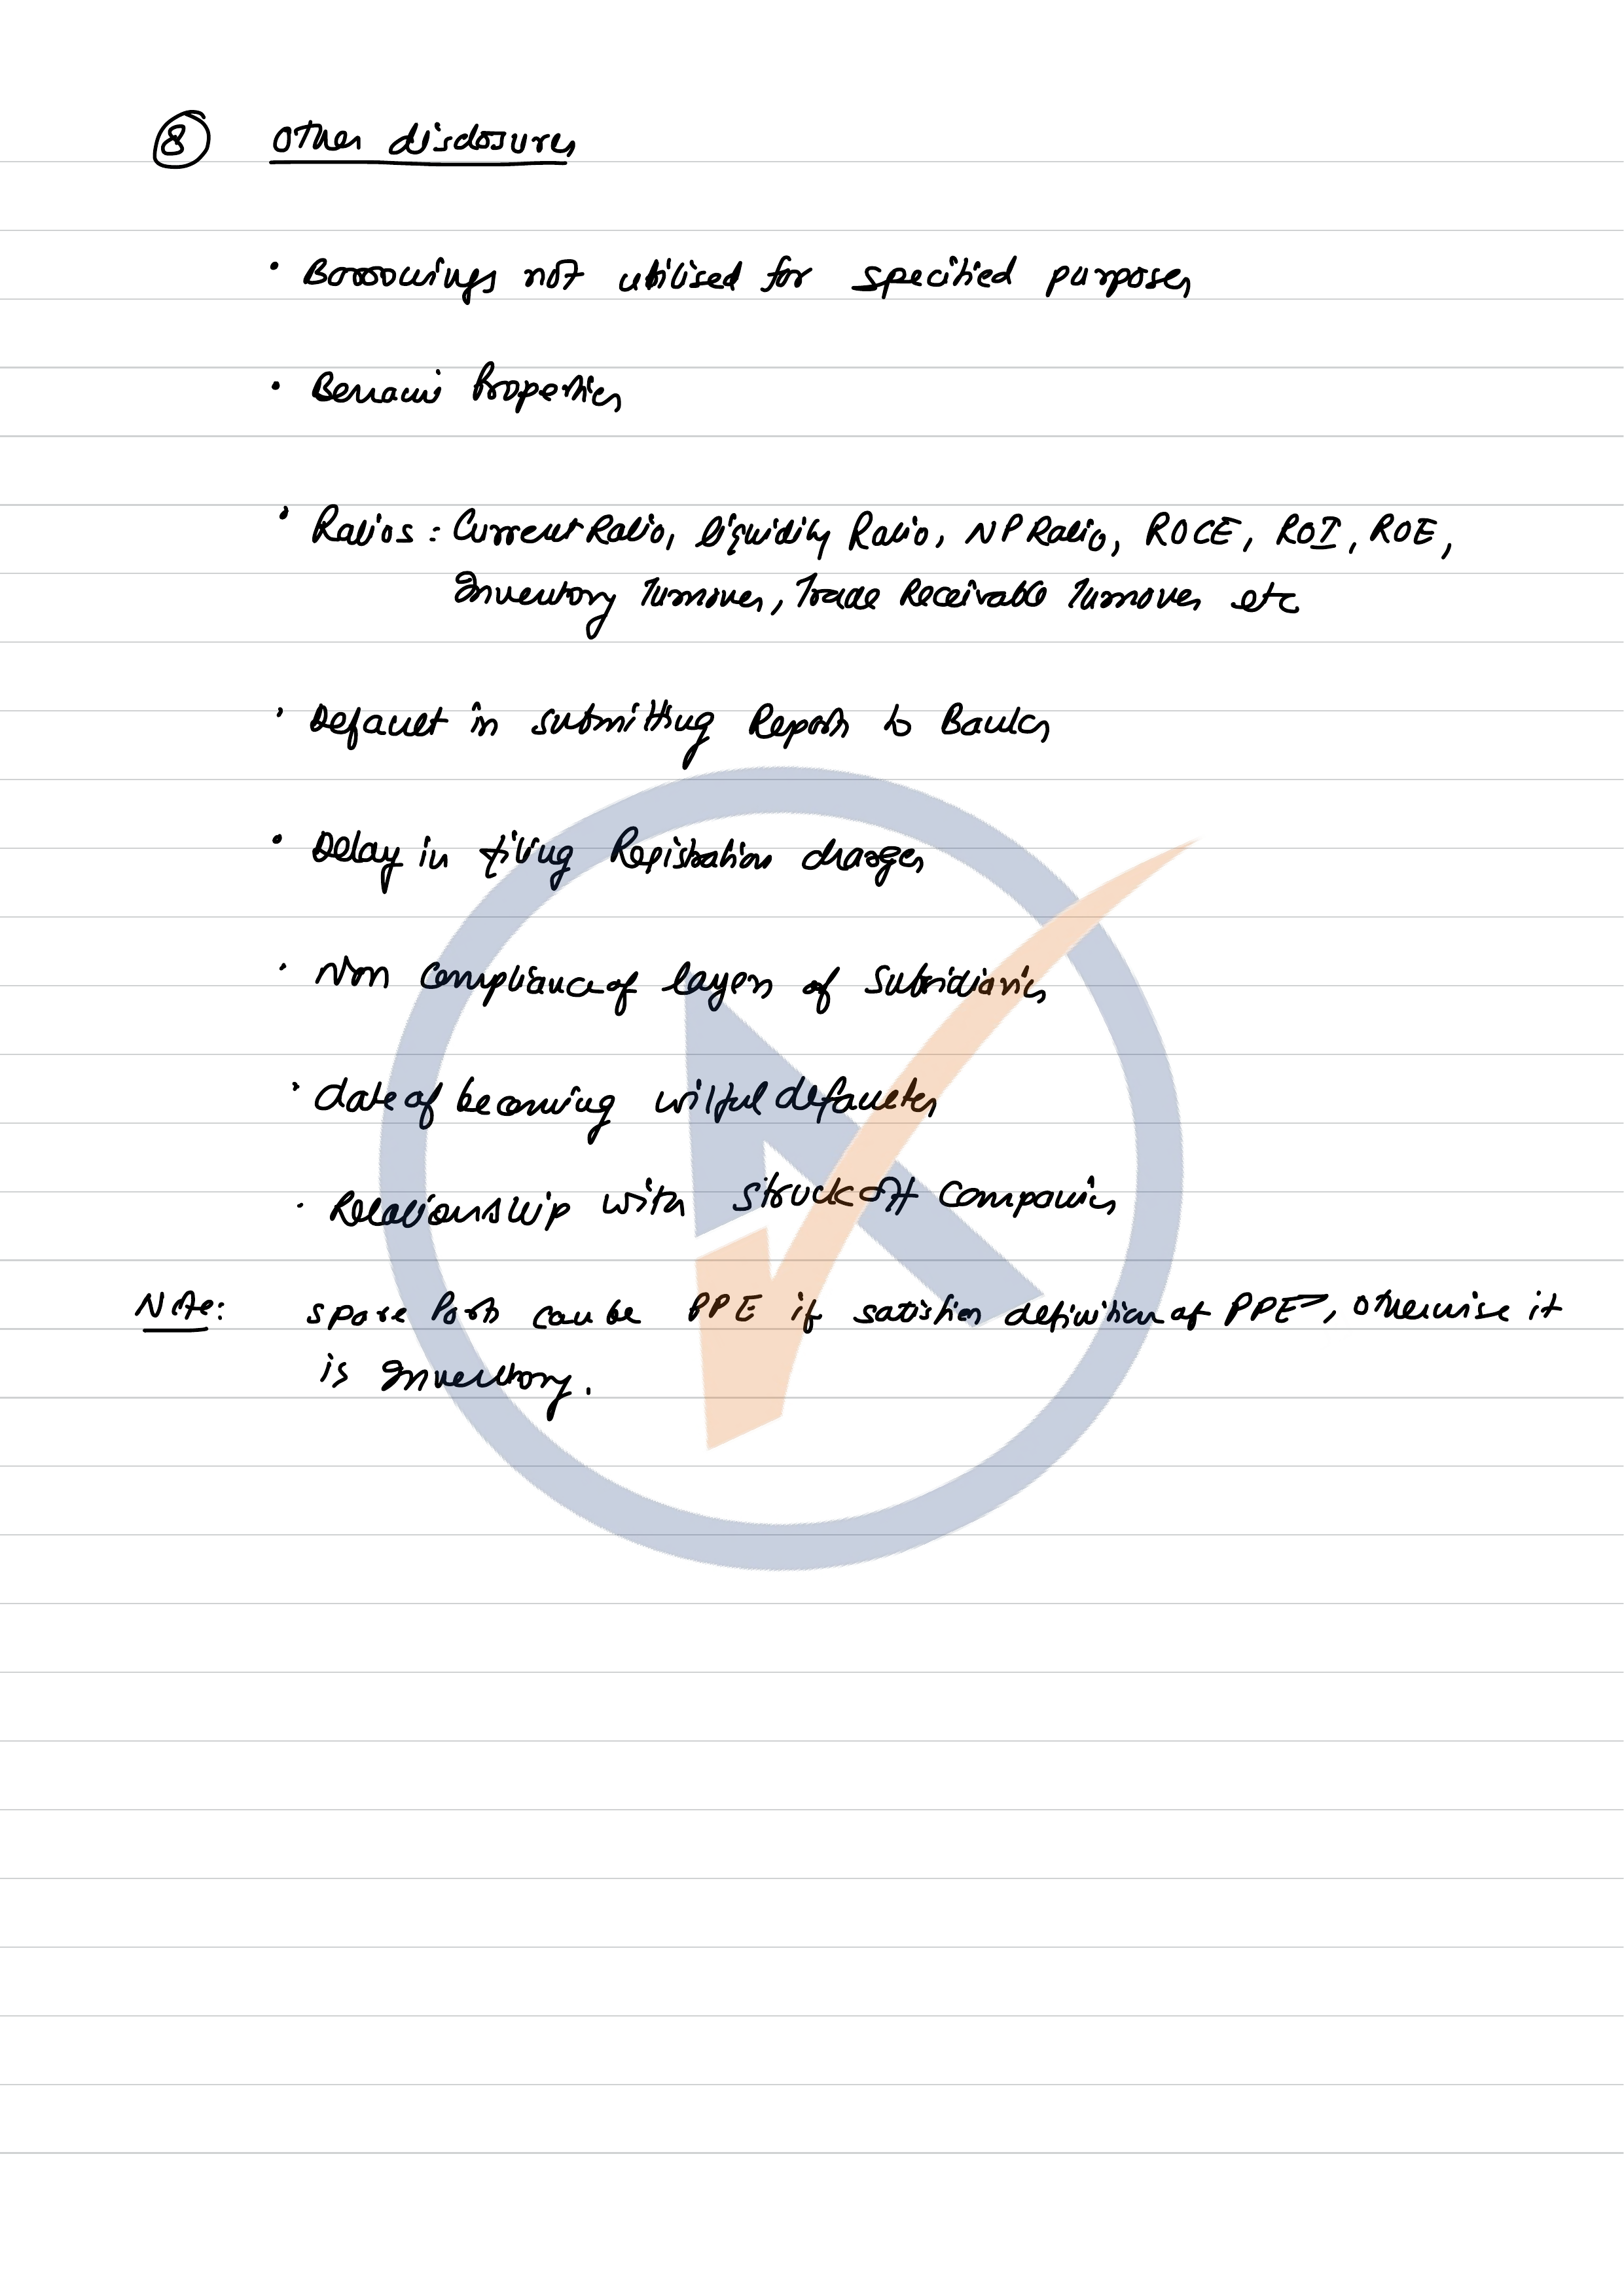 ⑧ Other disclosures
• Borrowings not utilised for specified purposes
• Benami Properties
• Ratios : Current Ratio, liquidity Ratio, NP Ratio, ROCE, ROI, ROE,
Inventory Turnover, Trade Receivable Turnover etc
• Default in submitting Reports to Banks
• Delay in filing Registration charges
• Non compliance of layers of Subsidiaries
• date of becoming wilful defaulter
• Relationship with struck off Companies
Note: spare Parts can be PPE if satisfies definition of PPE, otherwise it
is Inventory.